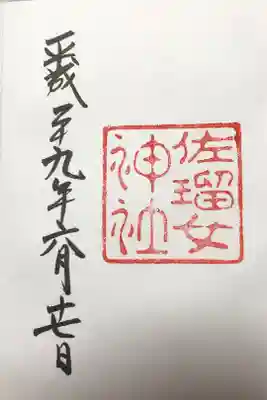 佐瑠女
神社
平成二十九年六月廿七日